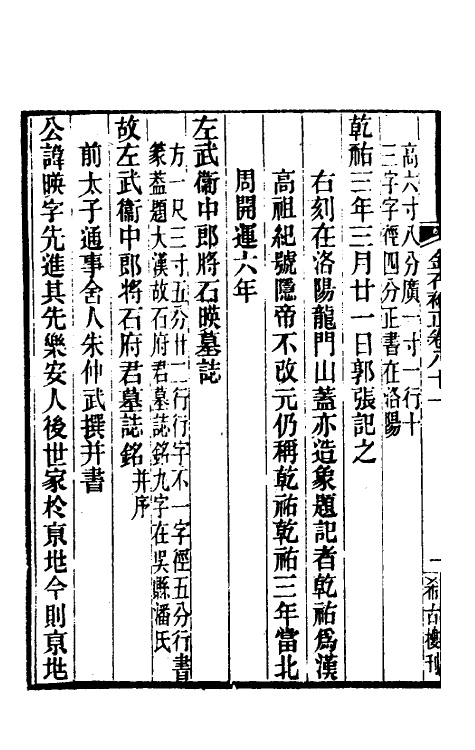 金石補正卷八十一
一
希古樓刊
高六寸八分廣一寸一行十
三字字徑四分正書在洛陽
乾祐三年三月廿一日郭張記之
右刻在洛陽龍門山蓋亦造象題記者乾祐爲漢
高祖紀號隱帝不改元仍稱乾祐乾祐三年當北
周開運六年
左武衞中郎將石暎墓誌
方一尺三寸五分廿二行行字不一字徑五分行書
篆蓋題大漢故石府君墓誌銘九字在吳縣潘氏
故左武衞中郎將石府君墓誌銘并序
前太子通事舍人朱仲武撰并書
公諱暎字先進其先樂安人後世家於京地今則京地